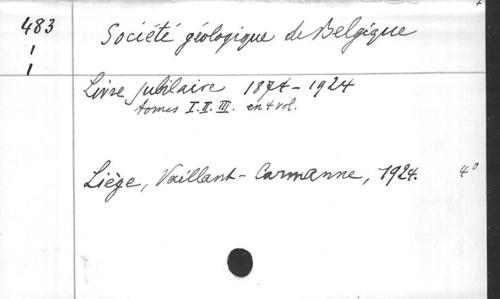 483 Société géologique de Belgique
1
1
Livre jubilaire 1874-1924
tomes I. II. III. en 4 vol.
Liège, Vaillant-Carmanne, 1924. 4°